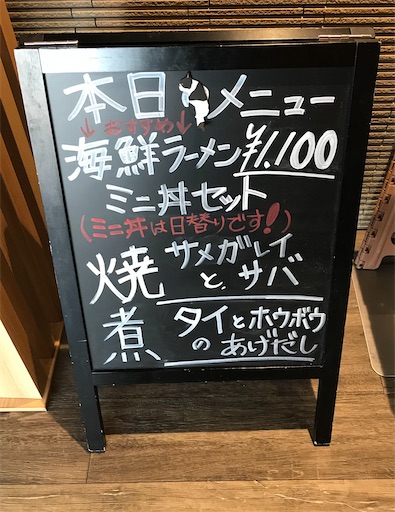 本日のメニュー
↓おすすめ↓
海鮮ラーメン ¥1,100
ミニ丼セット
(ミニ丼は日替りです!)
焼 サメガレイ
と、サバ
煮 タイとホウボウ
のあげだし